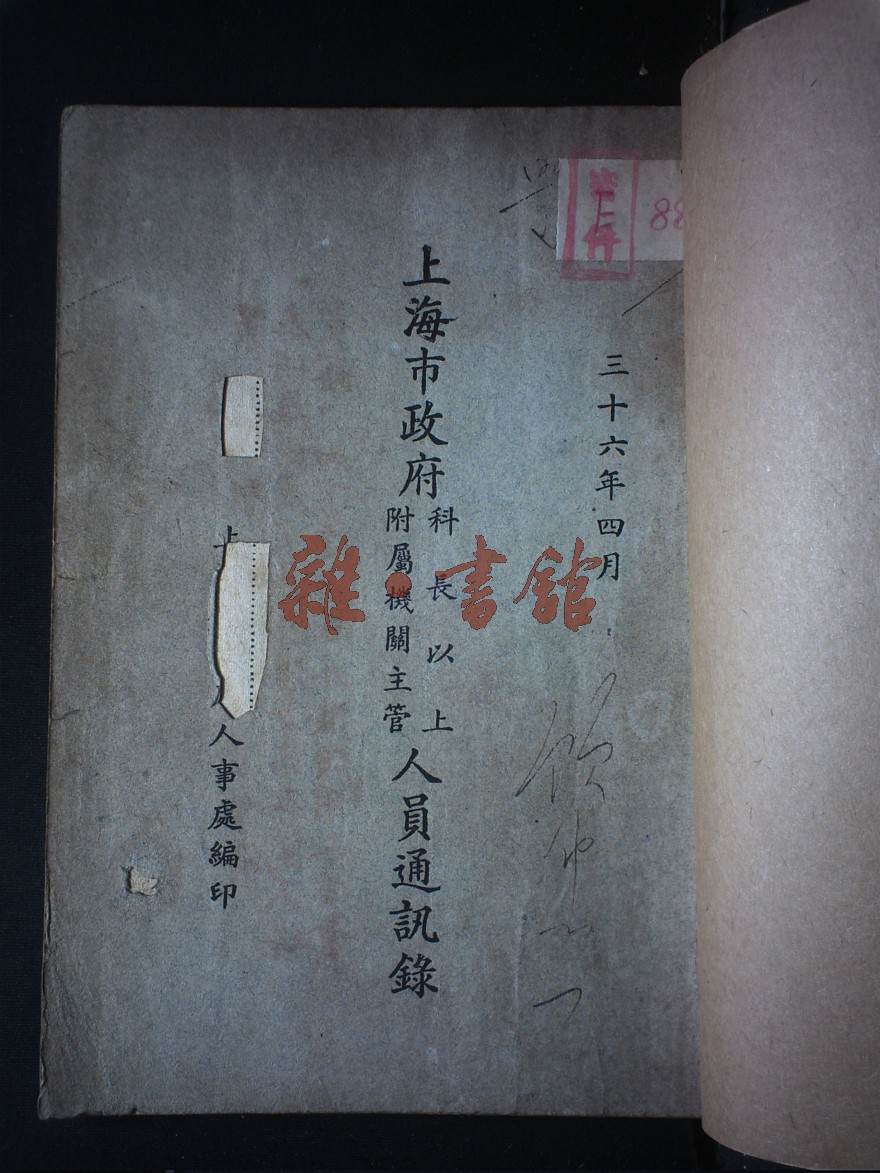 88
三十六年四月
上海市政府
科長以上
附屬機關主管
人員通訊錄
上
人事處編印
雜·書館